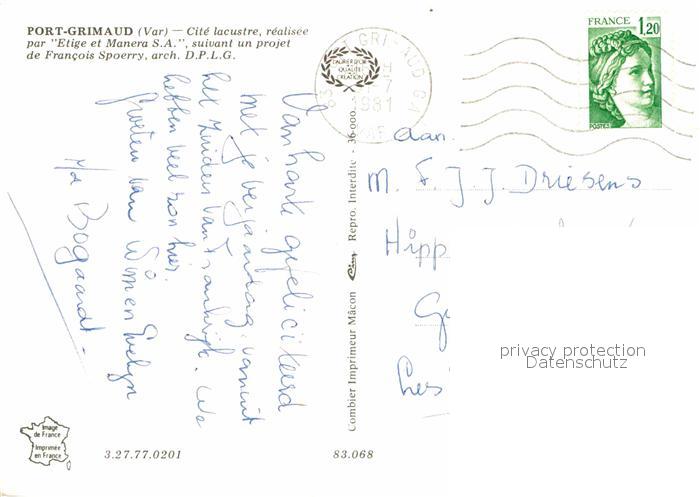 PORT-GRIMAUD (Var) — Cité lacustre, réalisée
par "Etige et Manera S.A.", suivant un projet
de François Spoerry, arch. D.P.L.G.
Van harte gefeliciteerd
met je verjaardag vanuit
het zuiden van Frankrijk. We
hebben veel zon hier.
Groeten van Wim en Evelyn
Bogaardt -
Combier Imprimeur Mâcon Repro. Interdite - 36.000
LAURIER D'OR
QUALITÉ
CRÉATION
83
1981
FRANCE 1,20
POSTES
aan.
M. F. J. J. Driesens
Hipp
privacy protection
Datenschutz
Image
de France
Imprimée
en France
3.27.77.0201
83.068